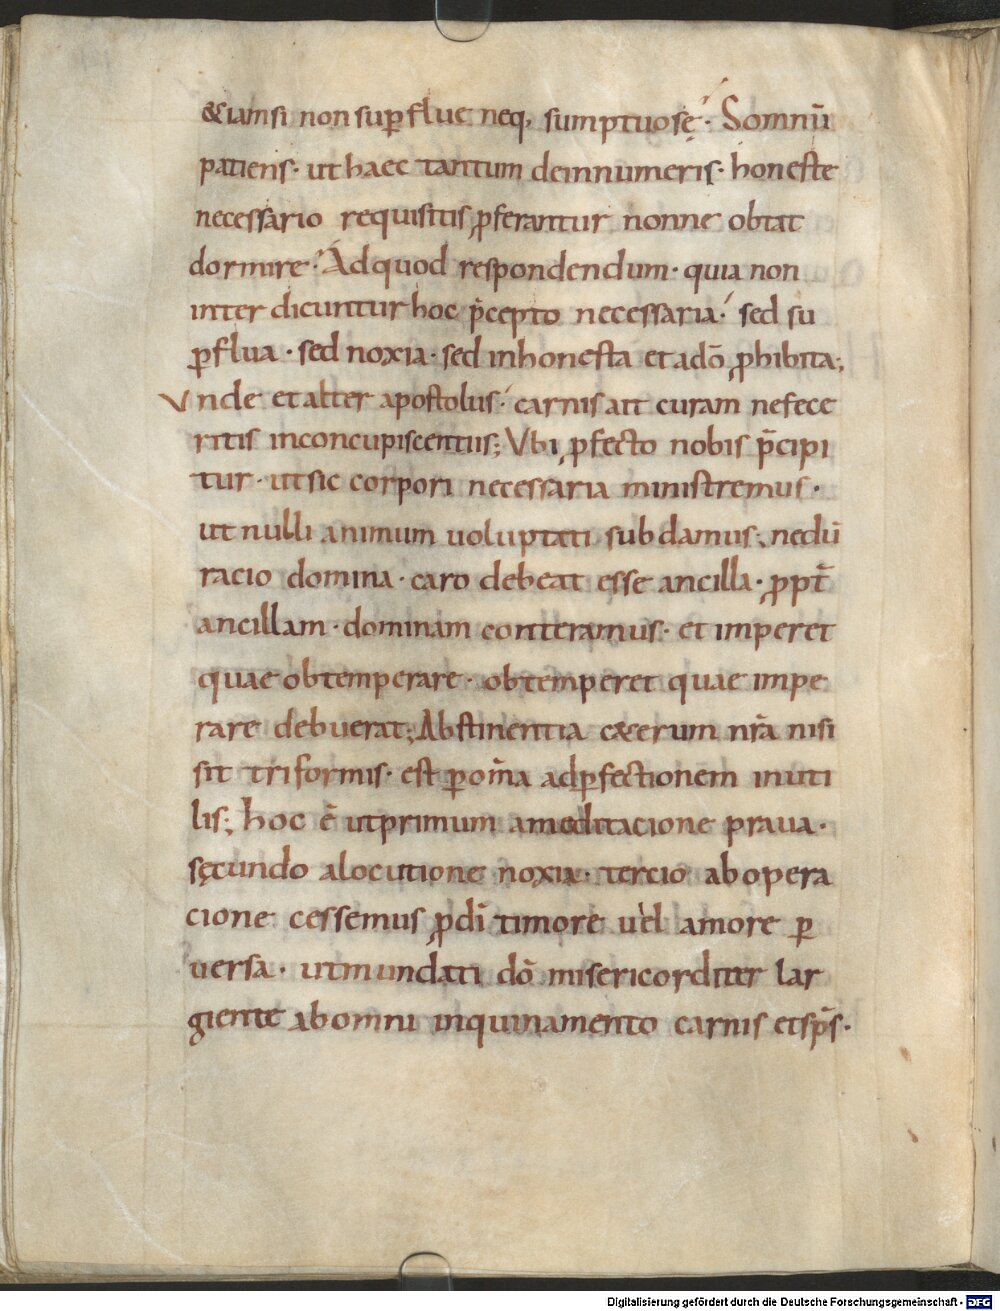 &iamsi non suꝑflue neq; sumptuosę. Somnū
patiens. ut haec tantum deinnumeris. honeste
necessario requisitis ꝓferantur nonne obtat
dormire. Adquod respondendum. quia non
inter dicuntur hoc p̄cepto necessaria. sed su
ꝑflua. sed noxia. sed inhonesta et adō ꝓhibita;
Vnde et alter apostolus. carnis ait curam nefece
ritis inconcupiscentiis; Vbi ꝓfecto nobis p̄cipi
tur. utsic corpori necessaria ministremus.
ut nulli animum uoluptati subdamus; nedū
racio domina. caro debeat esse ancilla. ꝓpt̄
ancillam. dominam conteramus. et imperet
quae obtemperare. obtemperet quae impe
rare debuerat; Abstinentia c&erum nr̄a nisi
sit triformis. est ꝑom̄a adꝑfectionem inuti
lis; hoc ē utprimum ameditacione praua.
sęcundo alocutione noxia. tercio abopera
cione cessemus ꝓdī timore uel amore ꝑ
uersa. utmundati dō misericorditer lar
giente abomni inquinamento carnis etsp̄s.
Digitalisierung gefördert durch die Deutsche Forschungsgemeinschaft - DFG